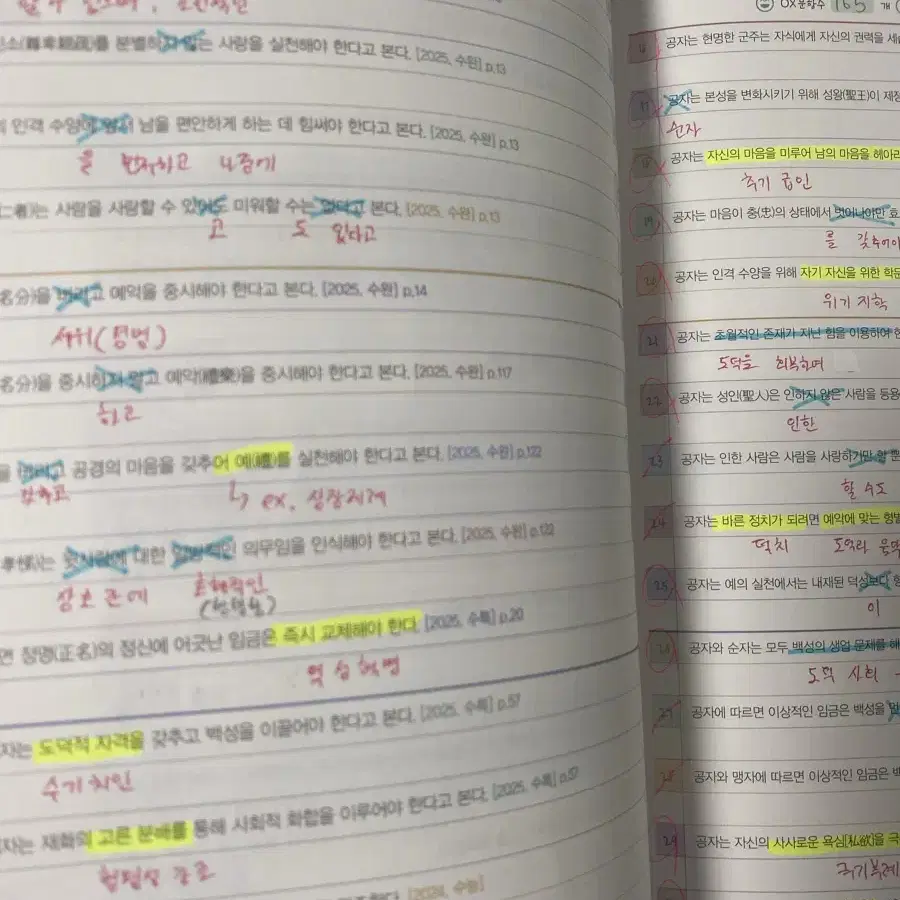 소(尊卑親疏)를 분별하지 않는 사랑을 실천해야 한다고 본다. [2025, 수완] p.13
인격 수양에 앞서 남을 편안하게 하는 데 힘써야 한다고 본다. [2025, 수완] p.13
을 먼저하고 나중에
(仁者)는 사람을 사랑할 수 있어도 미워할 수는 없다고 본다. [2025, 수완] p.13
고 도 있다고
名分)을 버리고 예악을 중시해야 한다고 본다. [2025, 수완] p.14
(정명)
名分)을 중시하지 말고 예악(禮樂)을 중시해야 한다고 본다. [2025, 수완] p.117
하고
을 버리고 공경의 마음을 갖추어 예(禮)를 실천해야 한다고 본다. [2025, 수완] p.122
갖추고 ↳ ex. 삼년
孝悌)는 대한 의무임을 인식해야 한다고 본다. [2025, 수완] p.122
면 정명(正名)의 정신에 어긋난 임금은 즉시 교체해야 한다. [2025, 수특] p.20
역성혁명
자는 도덕적 자격을 갖추고 백성을 이끌어야 한다고 본다. [2025, 수특] p.57
수기치인
자는 재화의 고른 분배를 통해 사회적 화합을 이루어야 한다고 본다. [2025, 수특] p.57
형평성 강조
[2024, 수능]
OX문항수 165 개
공자는 현명한 군주는 자식에게 자신의 권력을 세습
17 공자는 본성을 변화시키기 위해 성왕(聖王)이 제정
순자
공자는 자신의 마음을 미루어 남의 마음을 헤아려
추기급인
19 공자는 마음이 충(忠)의 상태에서 벗어나야만 효
를 갖추어야
20 공자는 인격 수양을 위해 자기 자신을 위한 학문
위기지학
21 공자는 초월적인 존재가 지닌 힘을 이용하여
도덕을 회복하며
22 공자는 성인(聖人)은 인하지 않은 사람을 등용
인한
23 공자는 인한 사람은 사람을 사랑하기만 할 뿐
할 수도
24 공자는 바른 정치가 되려면 예악에 맞는 형벌
덕치 도덕
25 공자는 예의 실천에서는 내재된 덕성보다
이
공자와 순자는 모두 백성의 생업 문제를 해
도덕 사회
27 공자에 따르면 이상적인 임금은 백성을
28 공자와 맹자에 따르면 이상적인 임금은 백
29 공자는 자신의 사사로운 욕심(私欲)을 극
극기복례